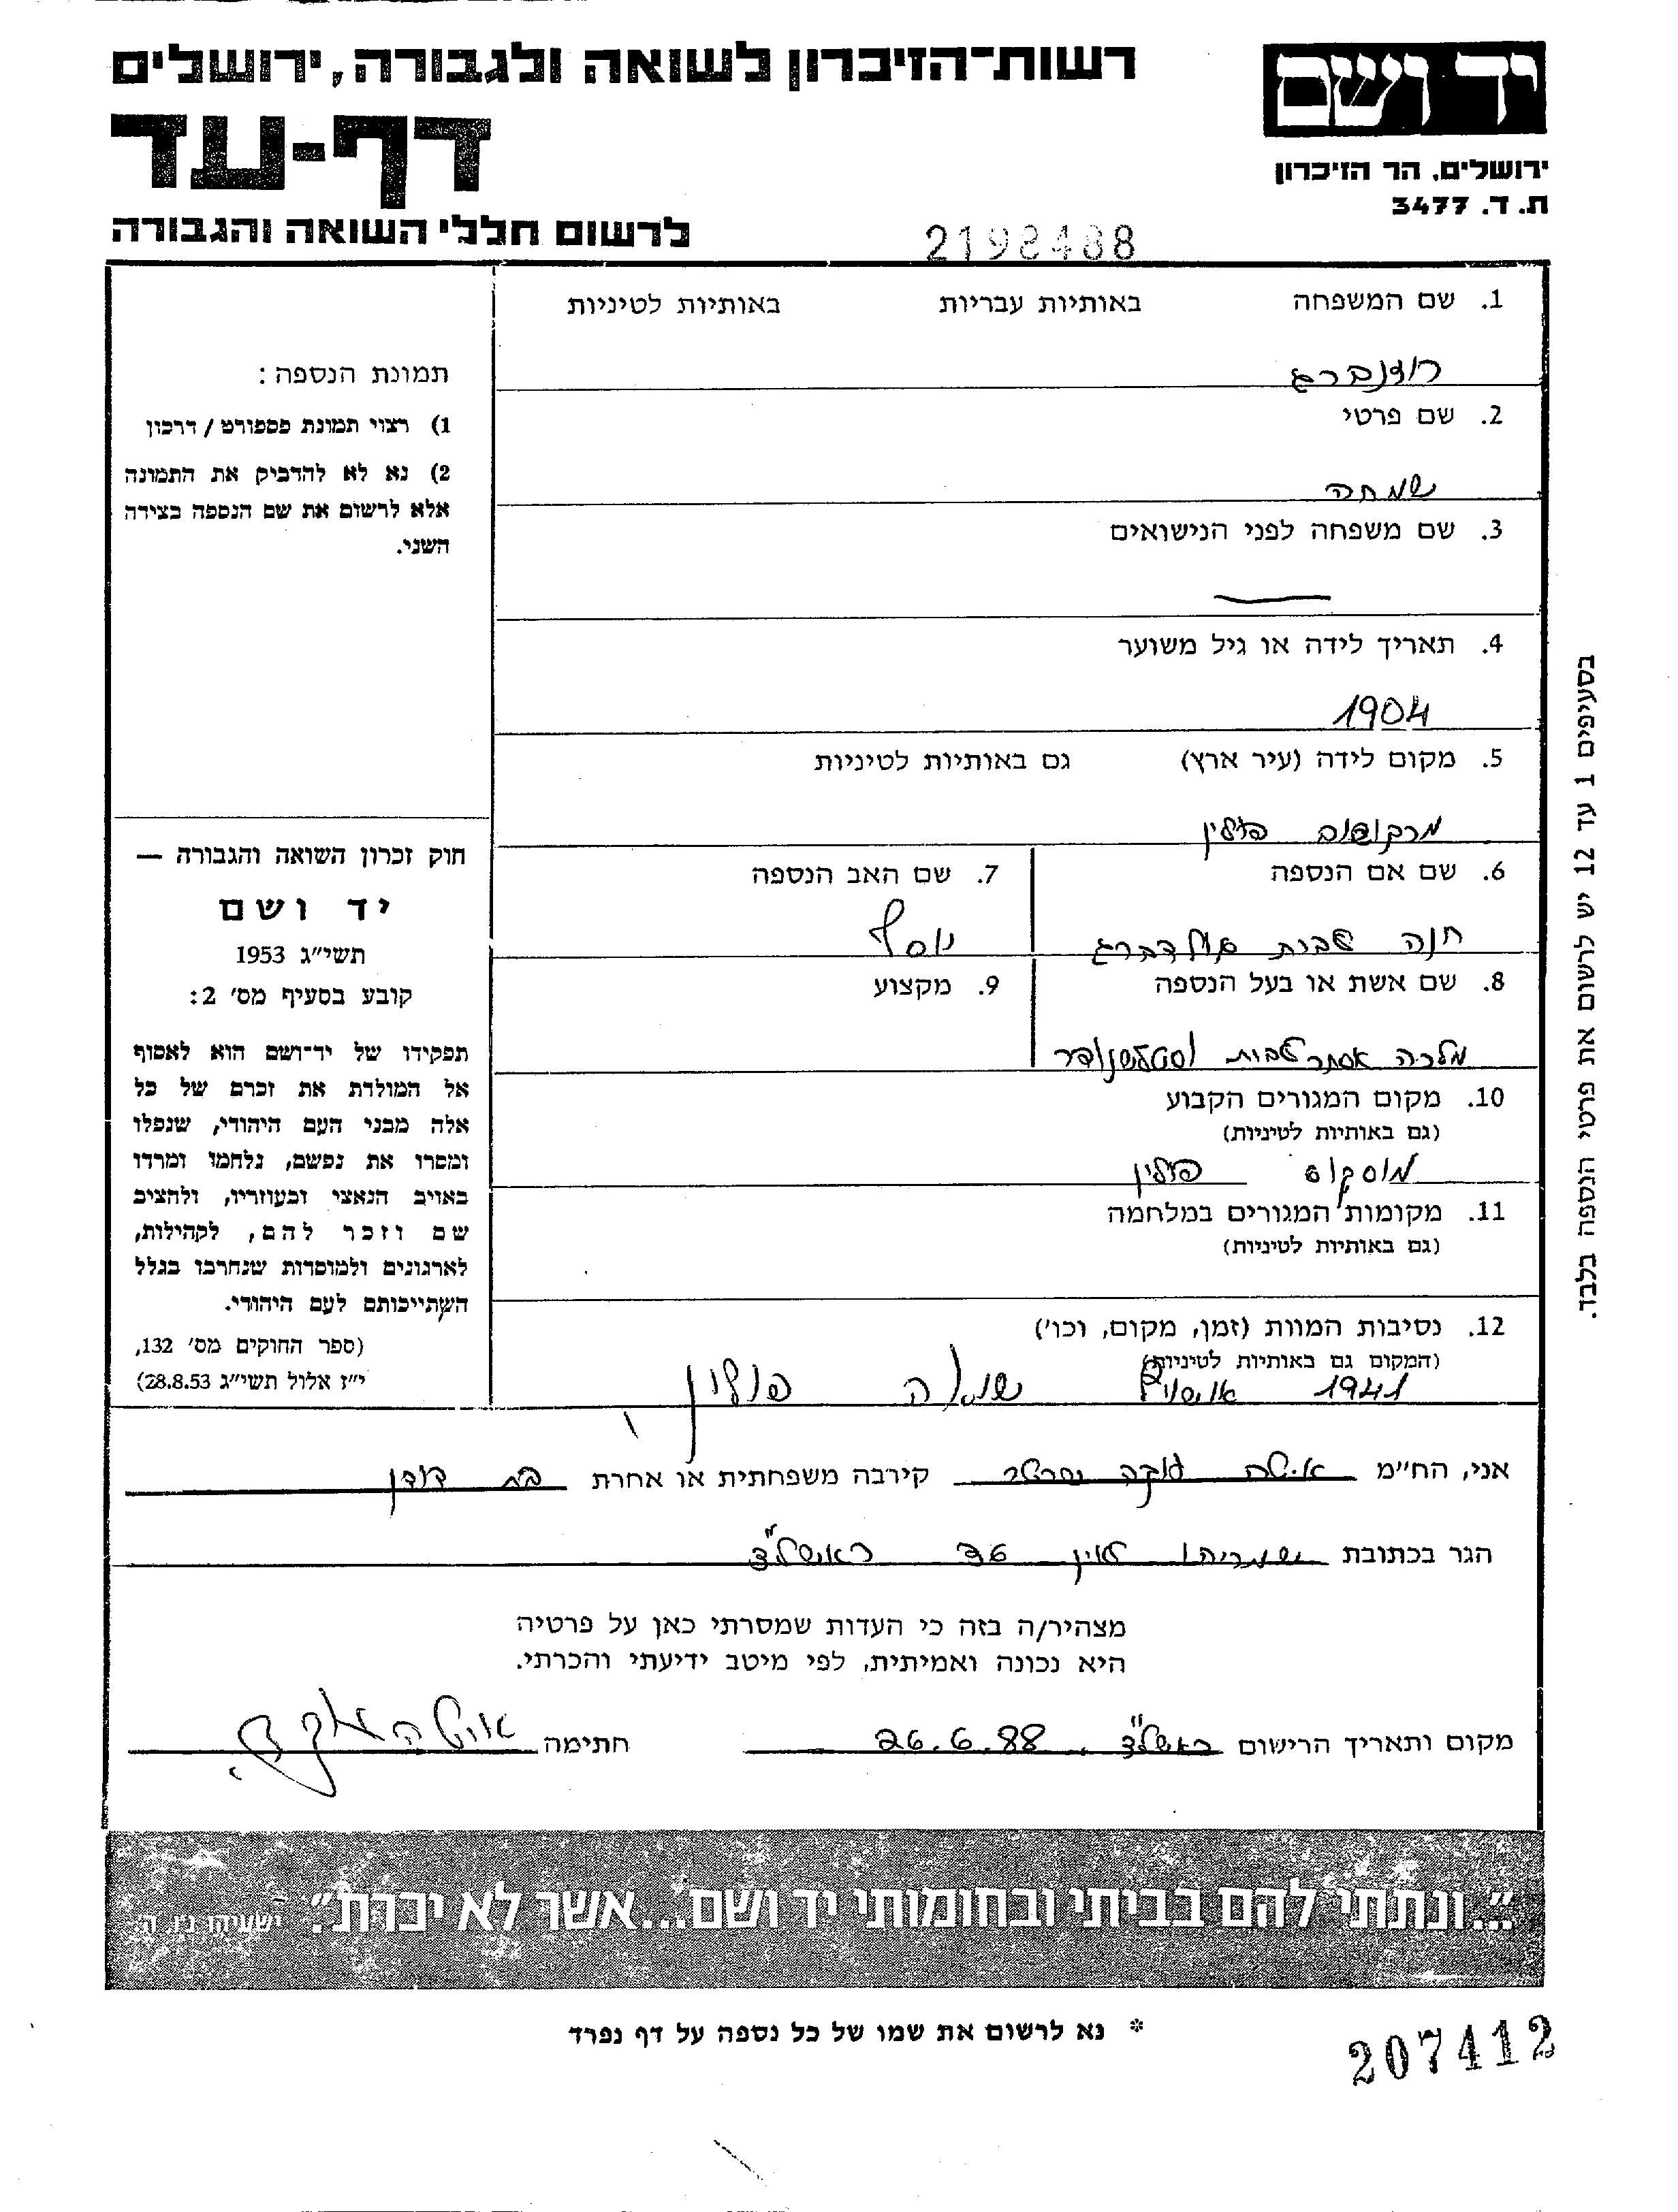 רשות־הזיכרון לשואה ולגבורה, ירושלים
יד ושם
דף-עד
ירושלים, הר הזיכרון
ת. ד. 3477
לרשום חללי השואה והגבורה
2198488
1. שם המשפחה באותיות עבריות באותיות לטיניות
רוזנברג
2. שם פרטי
שמחה
3. שם משפחה לפני הנישואים
4. תאריך לידה או גיל משוער
1904
5. מקום לידה (עיר ארץ) גם באותיות לטיניות
פולין
6. שם אם הנספה
חנה לבית גולדברג
7. שם האב הנספה
יוסף
8. שם אשת או בעל הנספה
מלכה אסתר לבית
9. מקצוע
10. מקום המגורים הקבוע
(גם באותיות לטיניות)
פולין
11. מקומות המגורים במלחמה
(גם באותיות לטיניות)
12. נסיבות המוות (זמן, מקום, וכו')
(המקום גם באותיות לטיניות)
1941 שואה פולין
תמונת הנספה:
1) רצוי תמונת פספורט / דרכון
2) נא לא להדביק את התמונה
אלא לרשום את שם הנספה בצידה
השני.
חוק זכרון השואה והגבורה —
יד ושם
תשי"ג 1953
קובע בסעיף מס' 2:
תפקידו של יד־ושם הוא לאסוף
אל המולדת את זכרם של כל
אלה מבני העם היהודי, שנפלו
ומסרו את נפשם, נלחמו ומרדו
באויב הנאצי ובעוזריו, ולהציב
שם וזכר להם, לקהילות,
לארגונים ולמוסדות שנחרבו בגלל
השתייכותם לעם היהודי.
(ספר החוקים מס' 132,
י"ז אלול תשי"ג 28.8.53)
בסעיפים 1 עד 12 יש לרשום את פרטי הנספה בלבד.
אני, הח"מ קירבה משפחתית או אחרת בת דודן
הגר בכתובת שמריהו לוין 36 ראשל"צ
מצהיר/ה בזה כי העדות שמסרתי כאן על פרטיה
היא נכונה ואמיתית, לפי מיטב ידיעתי והכרתי.
מקום ותאריך הרישום ראשל"צ, 26.6.88 חתימה
"...ונתתי להם בביתי ובחומותי יד ושם...אשר לא יכרת". ישעיהו נ"ו, ה'
* נא לרשום את שמו של כל נספה על דף נפרד
207412